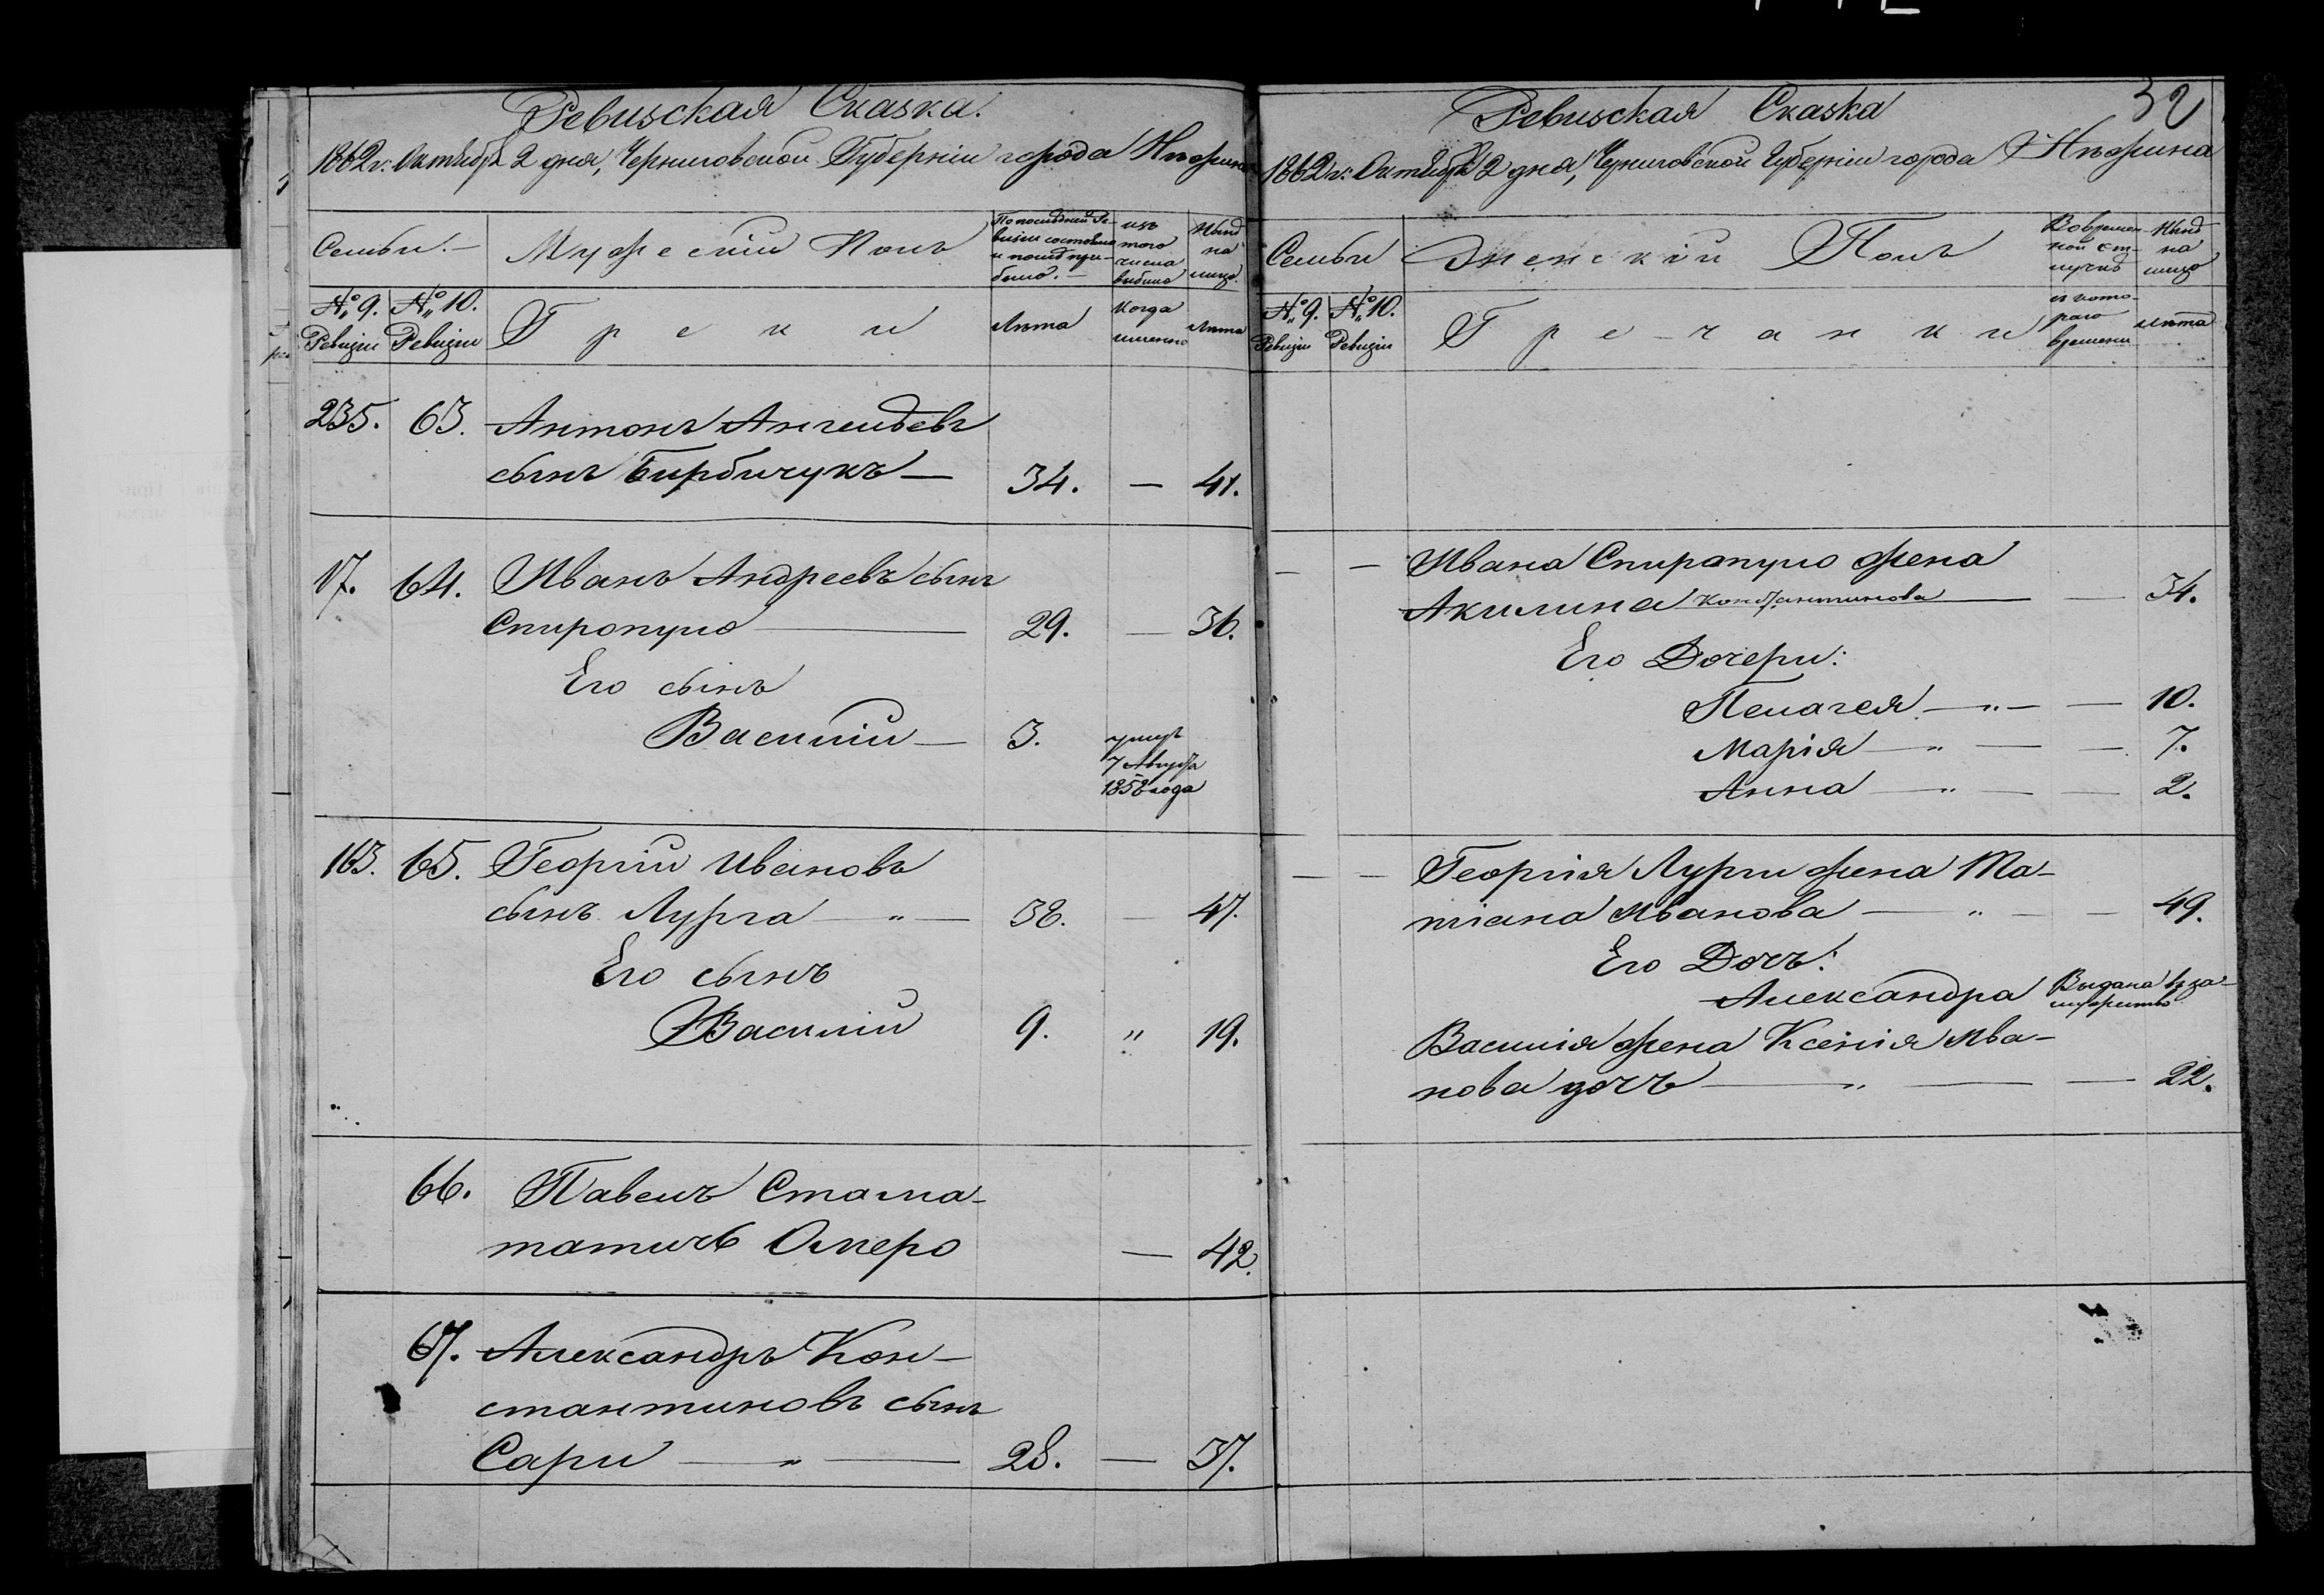 32
Ревизская Сказка.
1862 г. Октября 2 дня, Черниговской Губерніи города Нѣжина
Семьи.
Мужескій Полъ
По послѣдней Ре-
визіи состояло
и послѣ при-
было.
изъ
того
числа
выбыло
Нынѣ
на
лицо.
№ 9. Ревизіи
№ 10. Ревизіи
Греки
Лѣта
Когда
именно
Лѣта
235. 63. Антонъ Ангелѣевъ
сынъ Бирбичукъ — 34. — 41.
17. 64. Иванъ Андреевъ сынъ
Спиропуло — 29. — 36.
Его сынъ
Василій — 3. умеръ
7 Августа
1858 года
163. 65. Георгій Ивановъ
сынъ Лурга — " — 38. — 47.
Его сынъ
Василій 9. " 19.
66. Павелъ Стама-
татичъ Омеро — 42.
67. Александръ Кон-
стантиновъ сынъ
Сари — " — 28. — 37.
Ревизская Сказка
1862 г. Октября 2 дня, Черниговской Губерніи города Нѣжина
Семьи
Женскій Полъ
Во времен-
ной от-
лучкѣ
Нынѣ
на
лицо
№ 9. Ревизіи
№ 10. Ревизіи
Гречанки
съ кото-
раго
времени
лѣта
— — Ивана Спиропуло жена
Акилина Константинова — — 34.
Его Дочери:
Пелагея — " — — 10.
Марія — " — — 7.
Анна — " — — 2.
— — Георгія Лурги жена Та-
тіана Иванова — " — — 49.
Его Дочь:
Александра Выдана въ за-
мужество
Василія жена Ксенія Ива-
нова дочь — " — — 22.